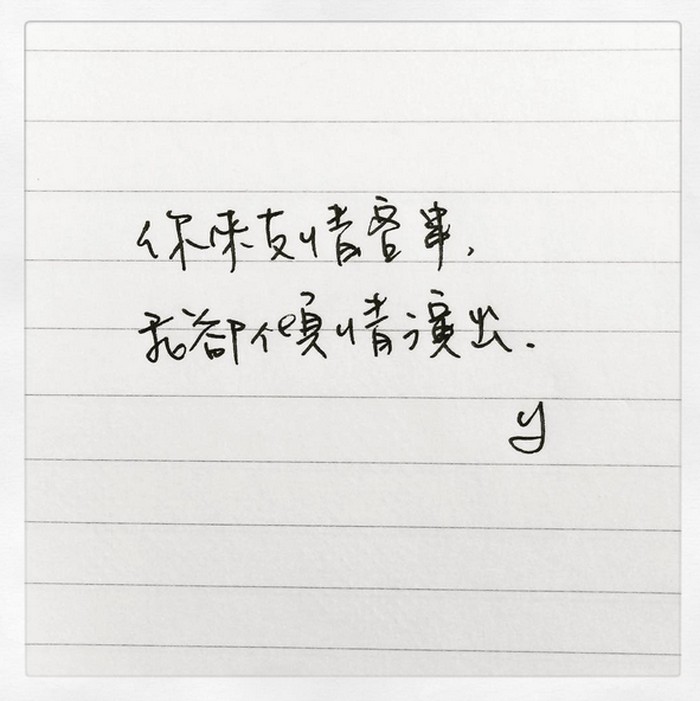 你來友情客串,
我卻傾情演出.
y